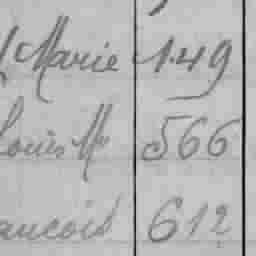 Marie 149
Louis Me 566
ancois 612